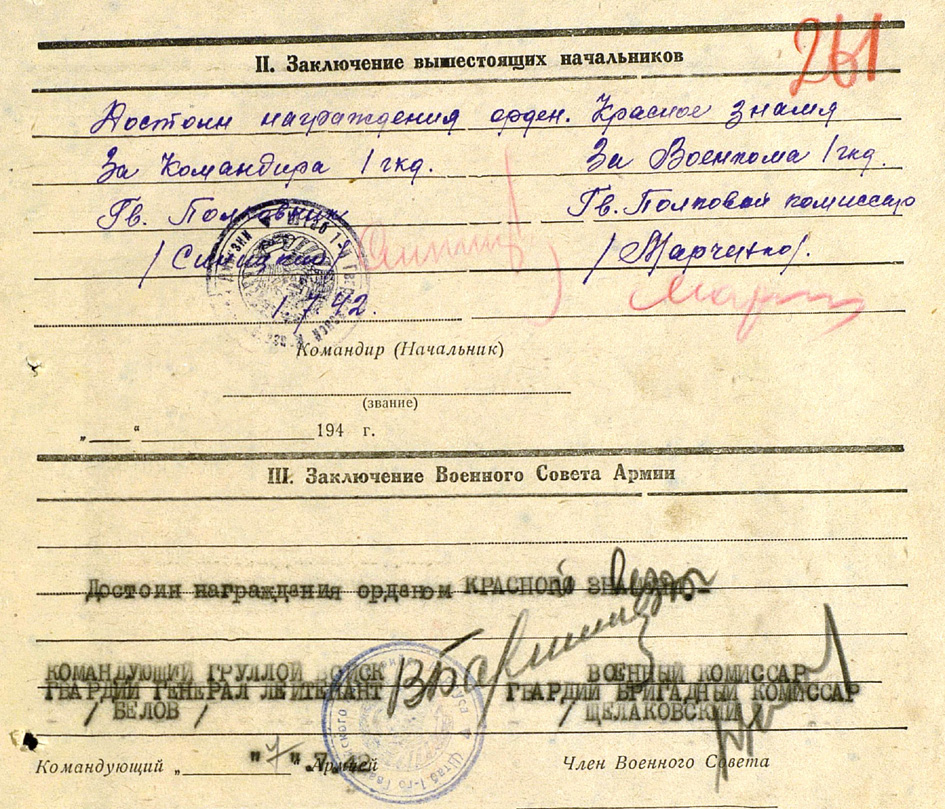 261
II. Заключение вышестоящих начальников
Достоин награждения орден. Красное Знамя
За Командира 1 гкд. За Военкома 1 гкд.
Гв. Полковник Гв. Полковой комиссар
/ Синицкий / / Марченко /.
1.7.42.
Командир (Начальник)
(звание)
„ “ 194 г.
III. Заключение Военного Совета Армии
Достоин награждения орденом КРАСНОЙ ЗНАМЯ
КОМАНДУЮЩИЙ ГРУППОЙ ВОЙСК ВОЕННЫЙ КОМИССАР
ГВАРДИИ ГЕНЕРАЛ ЛЕЙТЕНАНТ ГВАРДИИ БРИГАДНЫЙ КОМИССАР
/ БЕЛОВ / / ЩЕЛАКОВСКИЙ /
Командующий „ "7".7.42 Армией Член Военного Совета